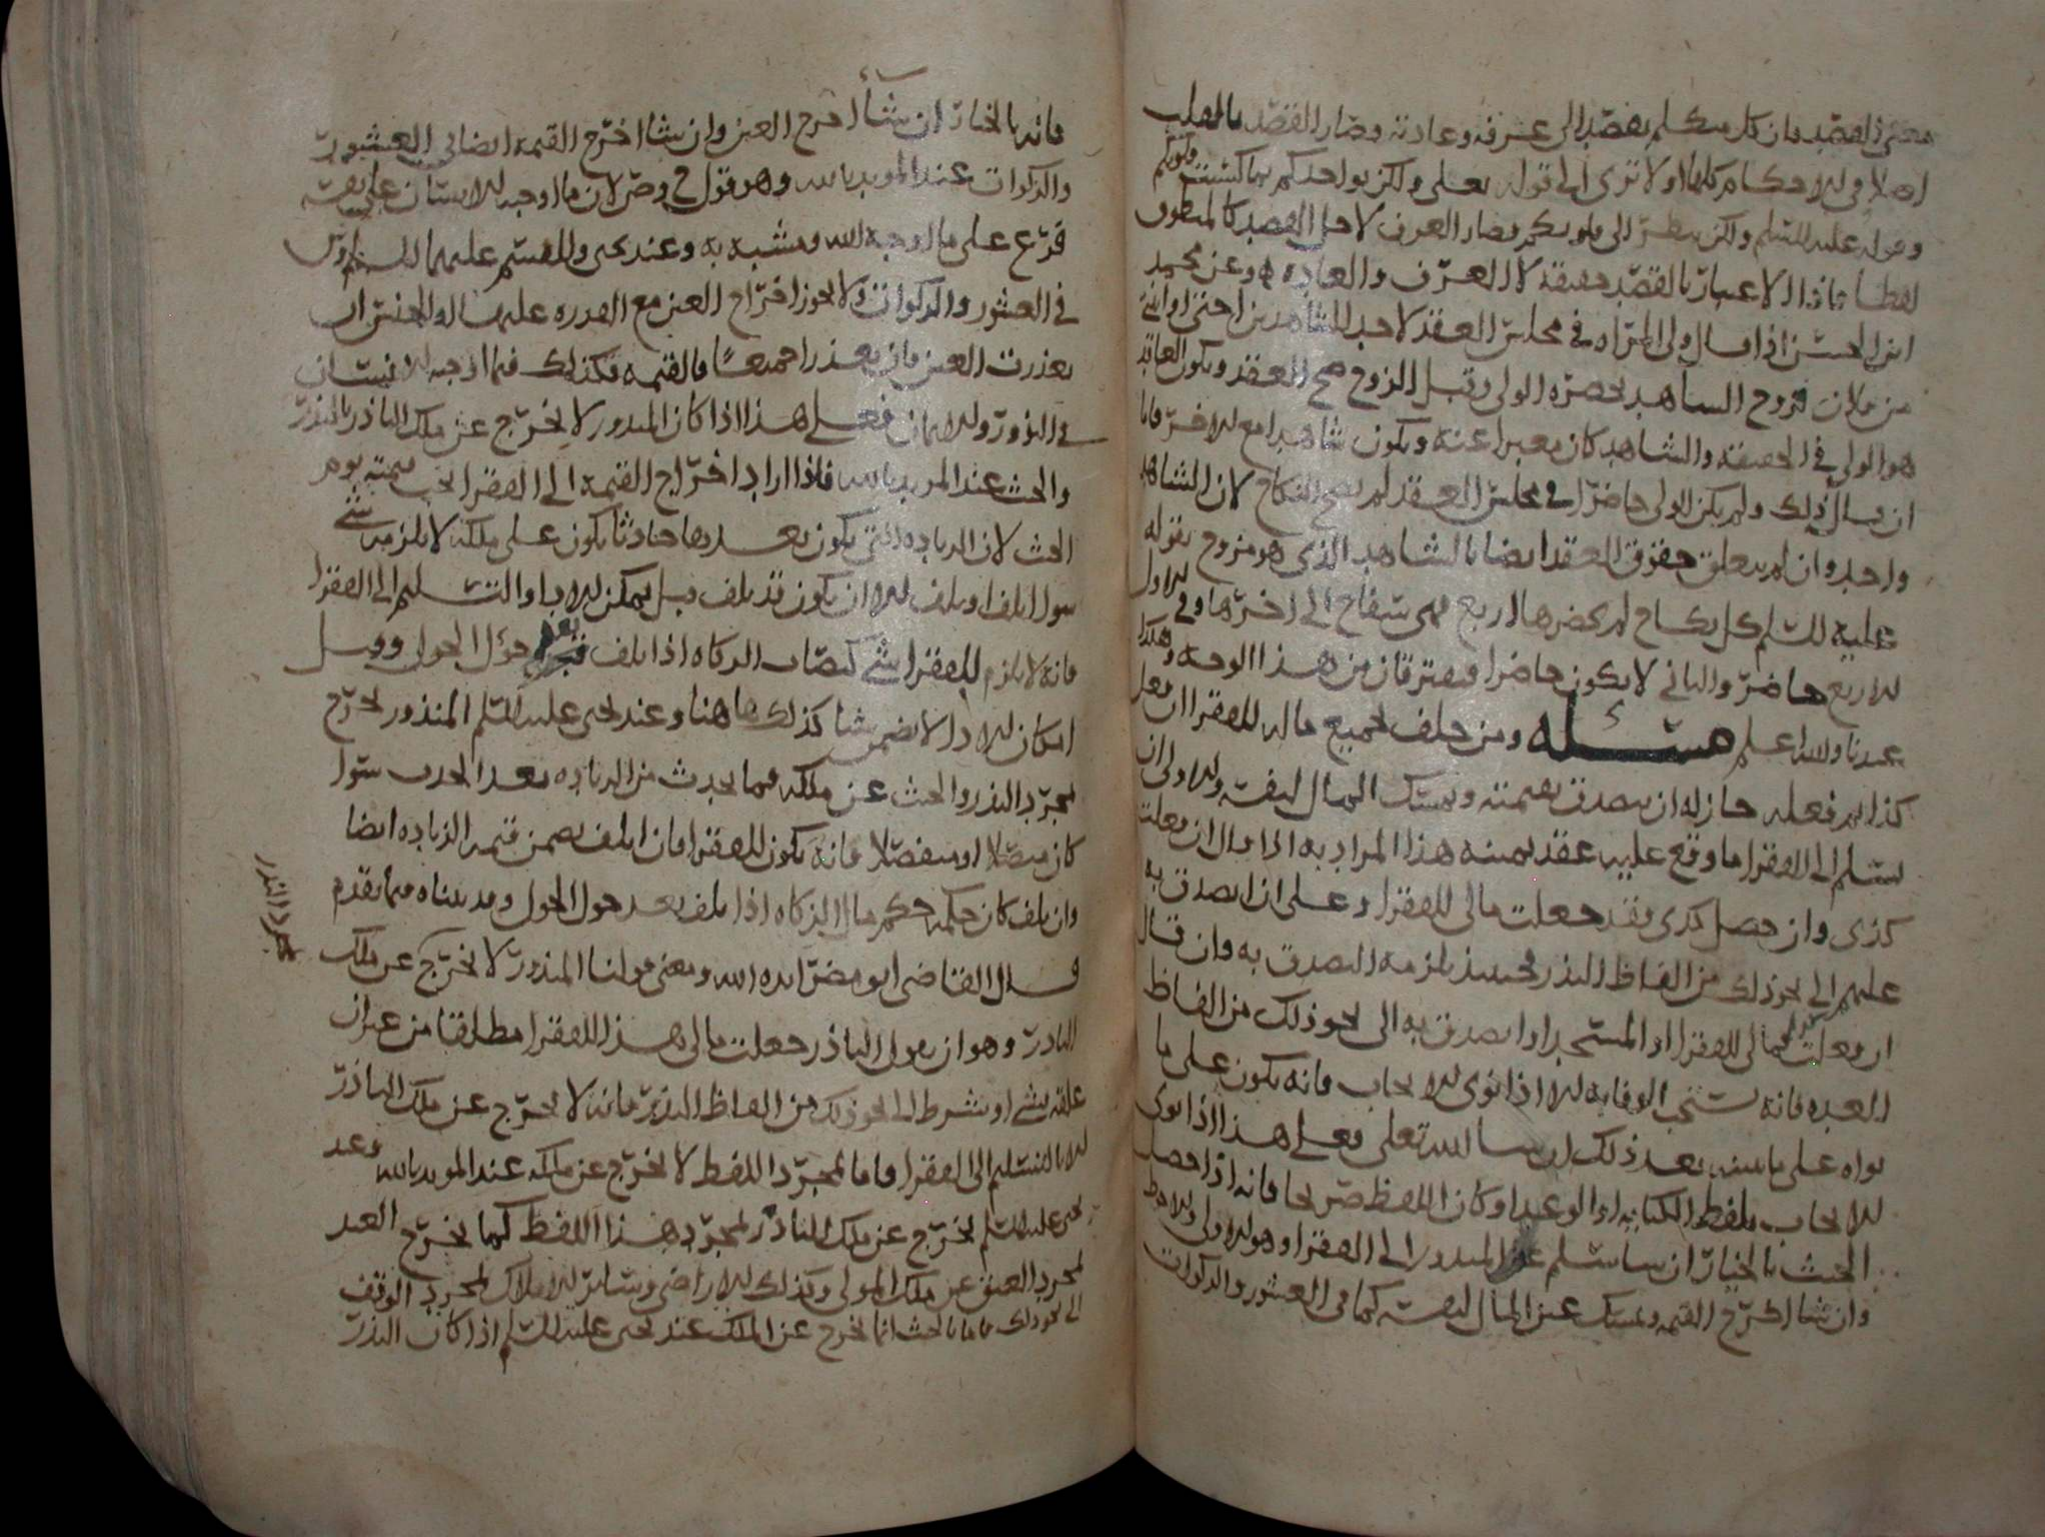 معنى القصد فان كل متكلم يقصد الى عرفه وعادته وصار القصد بالقلب
اصلا في الاحكام كلها اولا ترى الى قوله تعلى ولكن يواخذكم بما كسبت قلوبكم
وقوله عليه السلم ولكن ينظر الى قلوبكم فصار العرف لاجل القصد كالمنطوق
لفظا فاذا الاعتبار بالقصد حقيقة لا العرف والعاده وعن محمد
ابن الحسن اذا قال ولي المراه في مجلس العقد لاحد الشاهدين اختي او ابنتي
من فلان فزوج الشاهد بحضره الولي وقبل الزوج صح العقد ويكون العاقد
هو الولي في الحقيقه والشاهد كان معبرا عنه ويكون شاهدا مع الاخر فاما
ان قال ذلك ولم يكن الولي حاضرا في مجلس العقد لم يصح النكاح لان الشاهد
واحد وان لم يتعلق حقوق العقد ايضا بالشاهد الذي هو مزوج بقوله
عليه السلم كل نكاح لم يحضرها اربع فهي سفاح الى اخرها وفي الاول
الاربع حاضر والثاني لا يكون حاضرا فيفترقان من هذا الوجه وهكذا
عندنا والله اعلم مسئله ومن حلف بجميع ماله للفقرا ان فعل
كذا ثم فعله جاز له ان يتصدق بقيمته ويمسك المال لنفسه والاولى ان
يسلم الى الفقرا ما وقع عليه عقد يمينه هذا المراد به اذا قال ان فعلت
كذى وان حصل كذى فقد جعلت مالي للفقرا وعلى ان اتصدق به
عليهم الى نحو ذلك من الفاظ النذر فحينئذ يلزمه التصدق به وان قال
ان فعلت فمالي للفقرا او المسجد او اتصدق به الى نحو ذلك من الفاظ
العده فانه يستحب الوفا به الا اذا نوى الايجاب فانه يكون على ما
نواه على ما نبينه بعد ذلك ان شا الله تعلى فعلى هذا اذا نوى
الايجاب بلفظ الكنايه او الوعد او كان اللفظ صريحا فانه اذا حصل
الحنث بالخيار ان شا سلم عين المنذور الى الفقرا وهو الاولى والاحوط
وان شا اخرج القيمه ويمسك عين المال لنفسه كما في العشور والزكوات
فانه بالخيار ان شا اخرج العين وان شا اخرج القيمه ايضا في العشور
والزكوات عند المويد بالله وهو قول ح وص لان ما اوجبه الانسان على نفسه
فرع على ما اوجبه الله ومشبه به وعند يحيى والقسم عليهما السلم
في العشور والزكوات لا يجوز اخراج القيمه مع القدره على العين او الجنس ان
تعذرت العين فان تعذرا جميعا فالقيمه فكذلك فيما اوجبه الانسان
في النذور والايمان فعلى هذا اذا كان المنذور لا يخرج عن ملك الناذر بالنذر
والحنث عند المويد بالله فاذا اراد اخراج القيمه الى الفقرا يجب قيمته يوم
الحنث لان الزياده التي تكون بعدها حادثا يكون على ملكه لا يلزمه شي
سوا اتلف او تلف الا ان يكون قد تلف قبل يمكن الادا والتسليم الى الفقرا
فانه لا يلزم للفقرا شي كنصاب الزكاه اذا تلف بعد حول الحول وقبل
امكان الادا لا يضمن شيا كذلك هاهنا وعند يحيى عليه السلم المنذور يخرج
بمجرد النذر والحنث عن ملكه فما يحدث من الزياده بعد الحنث سوا
كان متصلا او منفصلا فانه يكون للفقرا فان اتلف يضمن قيمه الزياده ايضا
وان تلف كان حكمه حكم مال الزكاه اذا تلف بعد حول الحول وقد بيناه فيما تقدم
قال القاضي ابو مضر ايده الله ومعنى قولنا المنذور لا يخرج عن ملك
الناذر وهو ان يقول الناذر جعلت مالي هذا للفقرا مطلقا من غير ان
علقه بشي او بشرط الى نحو ذلك من الفاظ النذر فانه لا يخرج عن ملك الناذر
الا بالتسليم الى الفقرا فاما بمجرد اللفظ لا يخرج عن ملكه عند المويد بالله وعند
يحيى عليه السلم يخرج عن ملك الناذر بمجرد هذا اللفظ كما يخرج العبد
بمجرد العتق عن ملك المولى وكذلك الاراضي وسائر الاملاك بمجرد الوقف
الى نحو ذلك فاما بالحنث انما يخرج عن الملك عند يحيى عليه السلم اذا كان النذر
بمجرد النذر